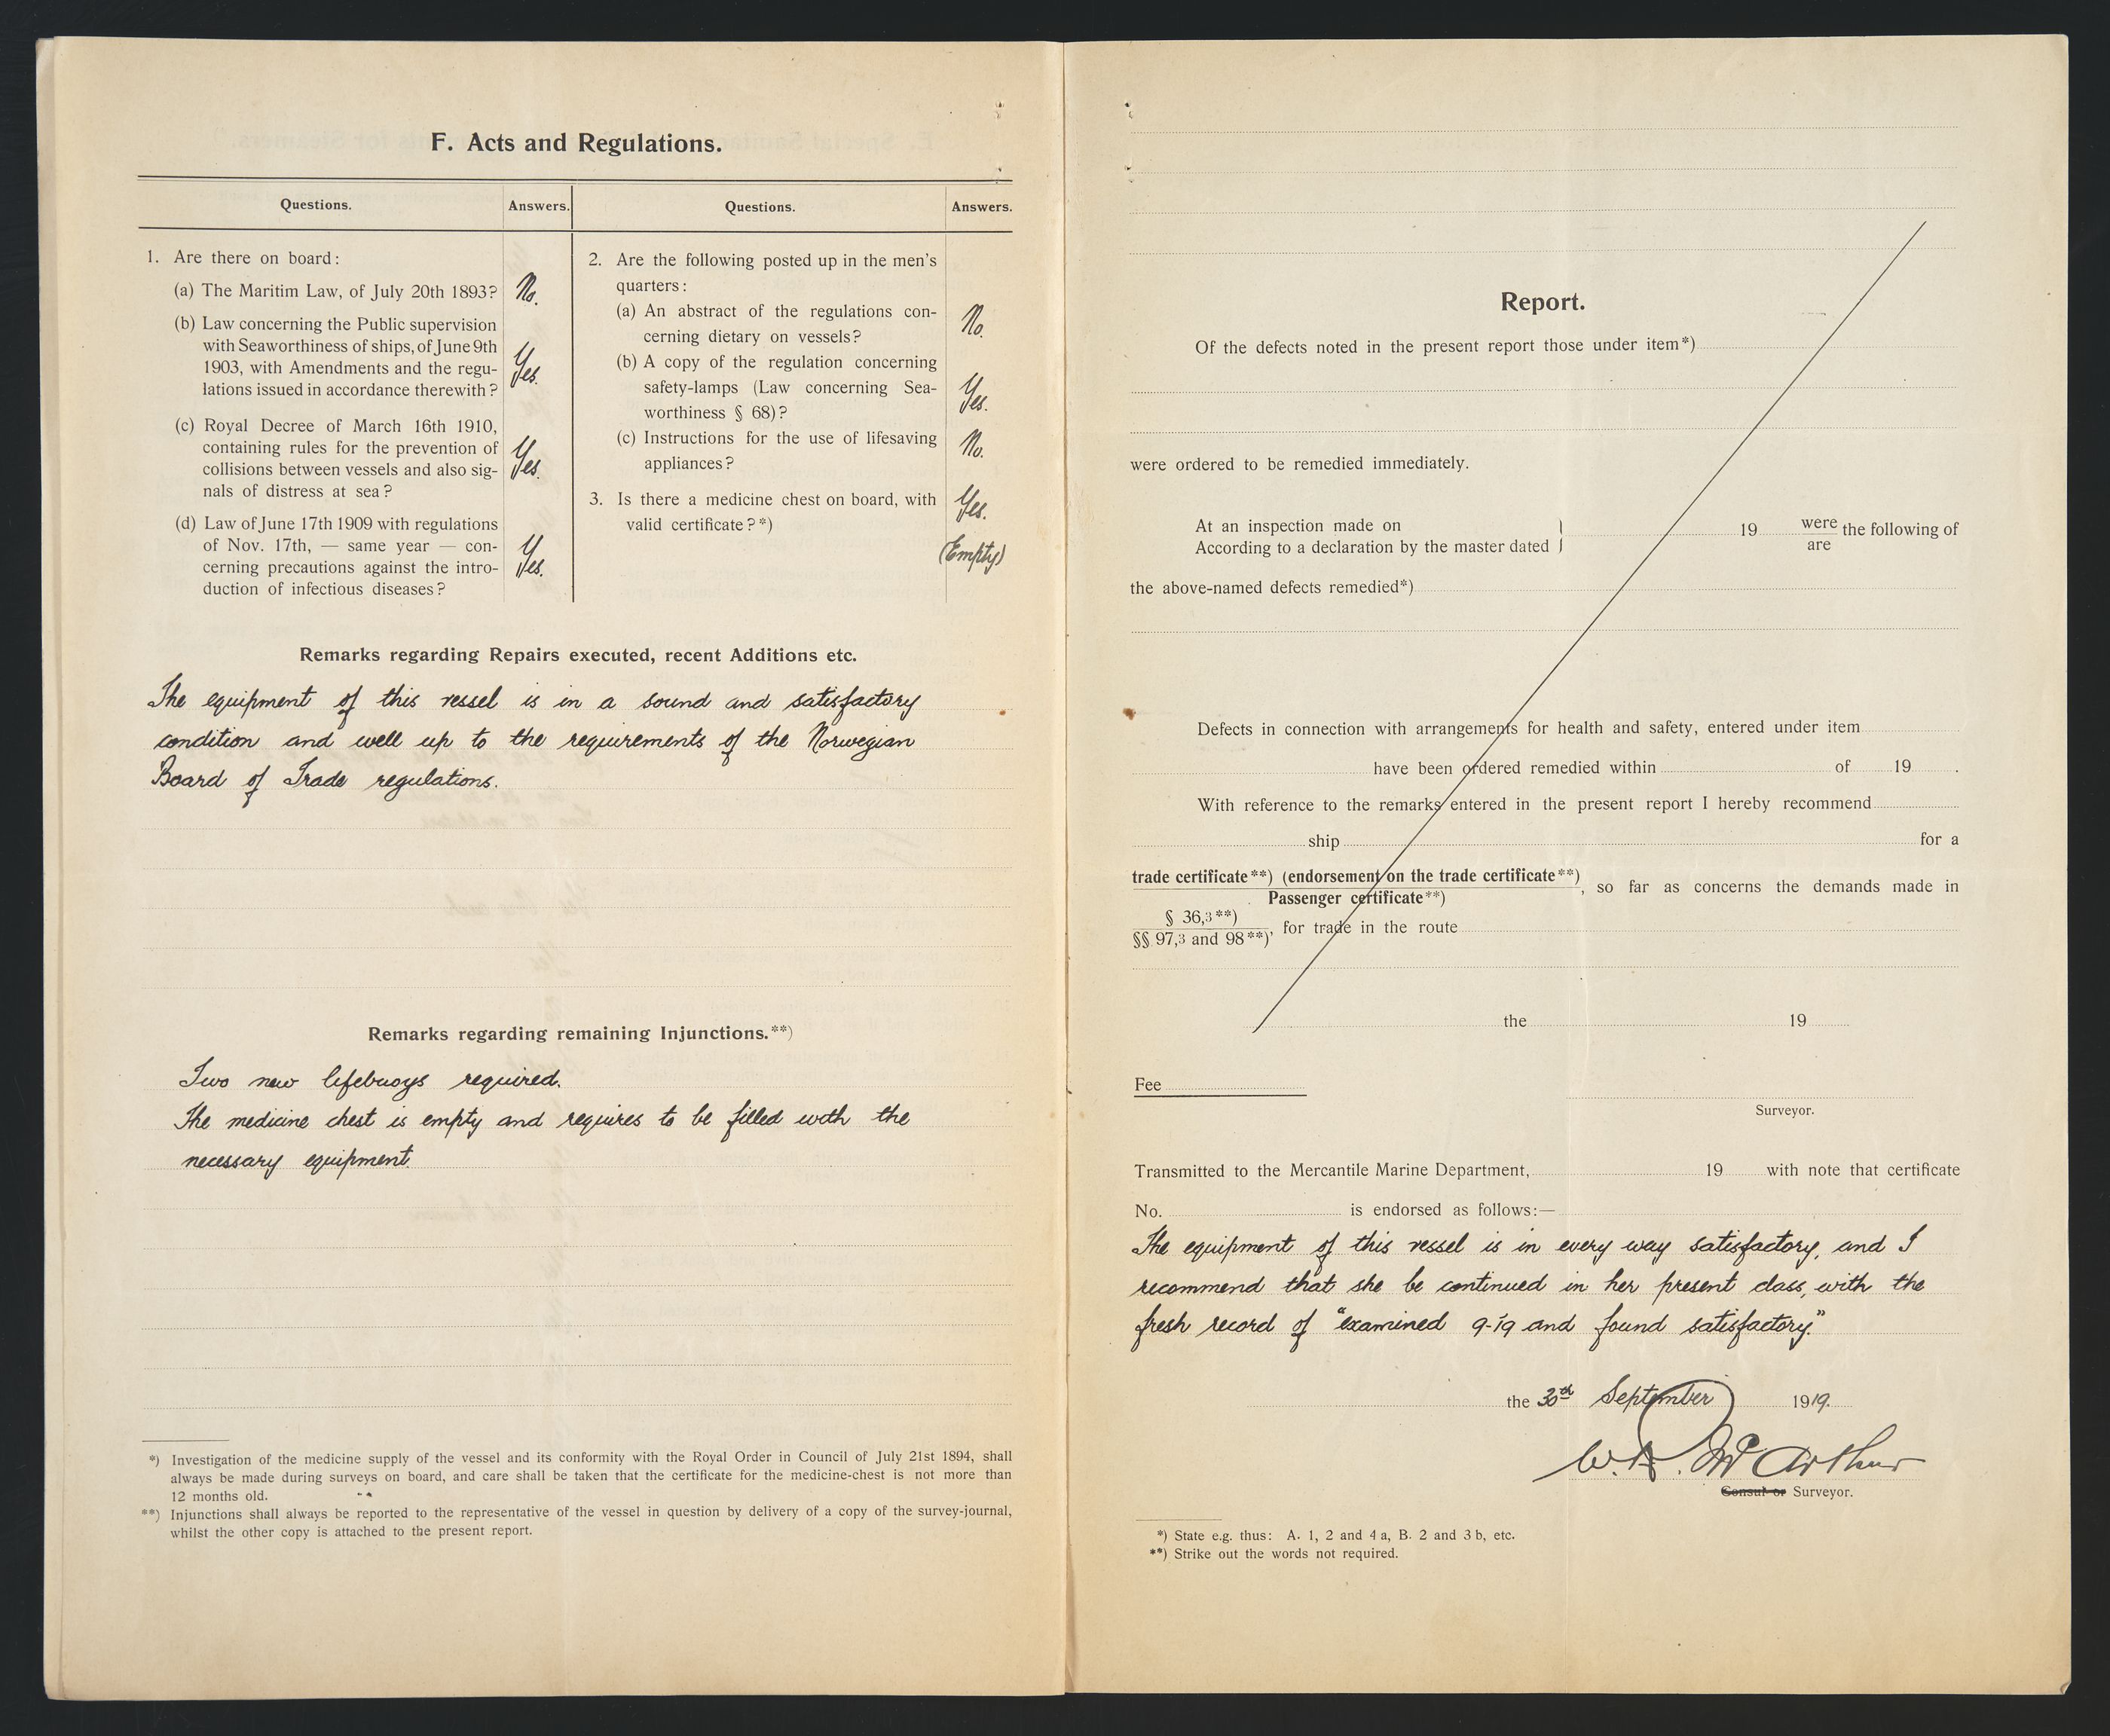 F. Acts and Regulations.
Questions.
Answers.
1. Are there on board:
(a) The Maritim Law, of July 20th 1893?
No.
(b) Law concerning the Public supervision
with Seaworthiness of ships, of June 9th
1903, with Amendments and the regu-
lations issued in accordance therewith?
Yes.
(c) Royal Decree of March 16th 1910,
containing rules for the prevention of
collisions between vessels and also sig-
nals of distress at sea?
Yes.
(d) Law of June 17th 1909 with regulations
of Nov. 17th, — same year — con-
cerning precautions against the intro-
duction of infectious diseases?
Yes.
Questions.
Answers.
2. Are the following posted up in the men's
quarters:
(a) An abstract of the regulations con-
cerning dietary on vessels?
No.
(b) A copy of the regulation concerning
safety-lamps (Law concerning Sea-
worthiness § 68)?
Yes.
(c) Instructions for the use of lifesaving
appliances?
No.
3. Is there a medicine chest on board, with
valid certificate?*)
Yes.
(Empty)
Remarks regarding Repairs executed, recent Additions etc.
The equipment of this vessel is in a sound and satisfactory
condition and well up to the requirements of the Norwegian
Board of Trade regulations.
Remarks regarding remaining Injunctions.**)
Two new lifebuoys required.
The medicine chest is empty and requires to be filled with the
necessary equipment.
*) Investigation of the medicine supply of the vessel and its conformity with the Royal Order in Council of July 21st 1894, shall
always be made during surveys on board, and care shall be taken that the certificate for the medicine-chest is not more than
12 months old.
**) Injunctions shall always be reported to the representative of the vessel in question by delivery of a copy of the survey-journal,
whilst the other copy is attached to the present report.
Report.
Of the defects noted in the present report those under item*)
were ordered to be remedied immediately.
At an inspection made on
According to a declaration by the master dated
19
were
are
the following of
the above-named defects remedied*)
Defects in connection with arrangements for health and safety, entered under item
have been ordered remedied within of 19 .
With reference to the remarks entered in the present report I hereby recommend
ship for a
trade certificate**) (endorsement on the trade certificate**)
Passenger certificate**)
, so far as concerns the demands made in
§ 36,3**)
§§ 97,3 and 98**)
, for trade in the route
the 19
Fee
Surveyor.
Transmitted to the Mercantile Marine Department, 19 with note that certificate
No. is endorsed as follows:—
The equipment of this vessel is in every way satisfactory, and I
recommend that she be continued in her present class, with the
fresh record of "examined 9-19 and found satisfactory."
the 30th September 1919.
W. A. McArthur
Consul or Surveyor.
*) State e.g. thus: A. 1, 2 and 4 a, B. 2 and 3 b, etc.
**) Strike out the words not required.